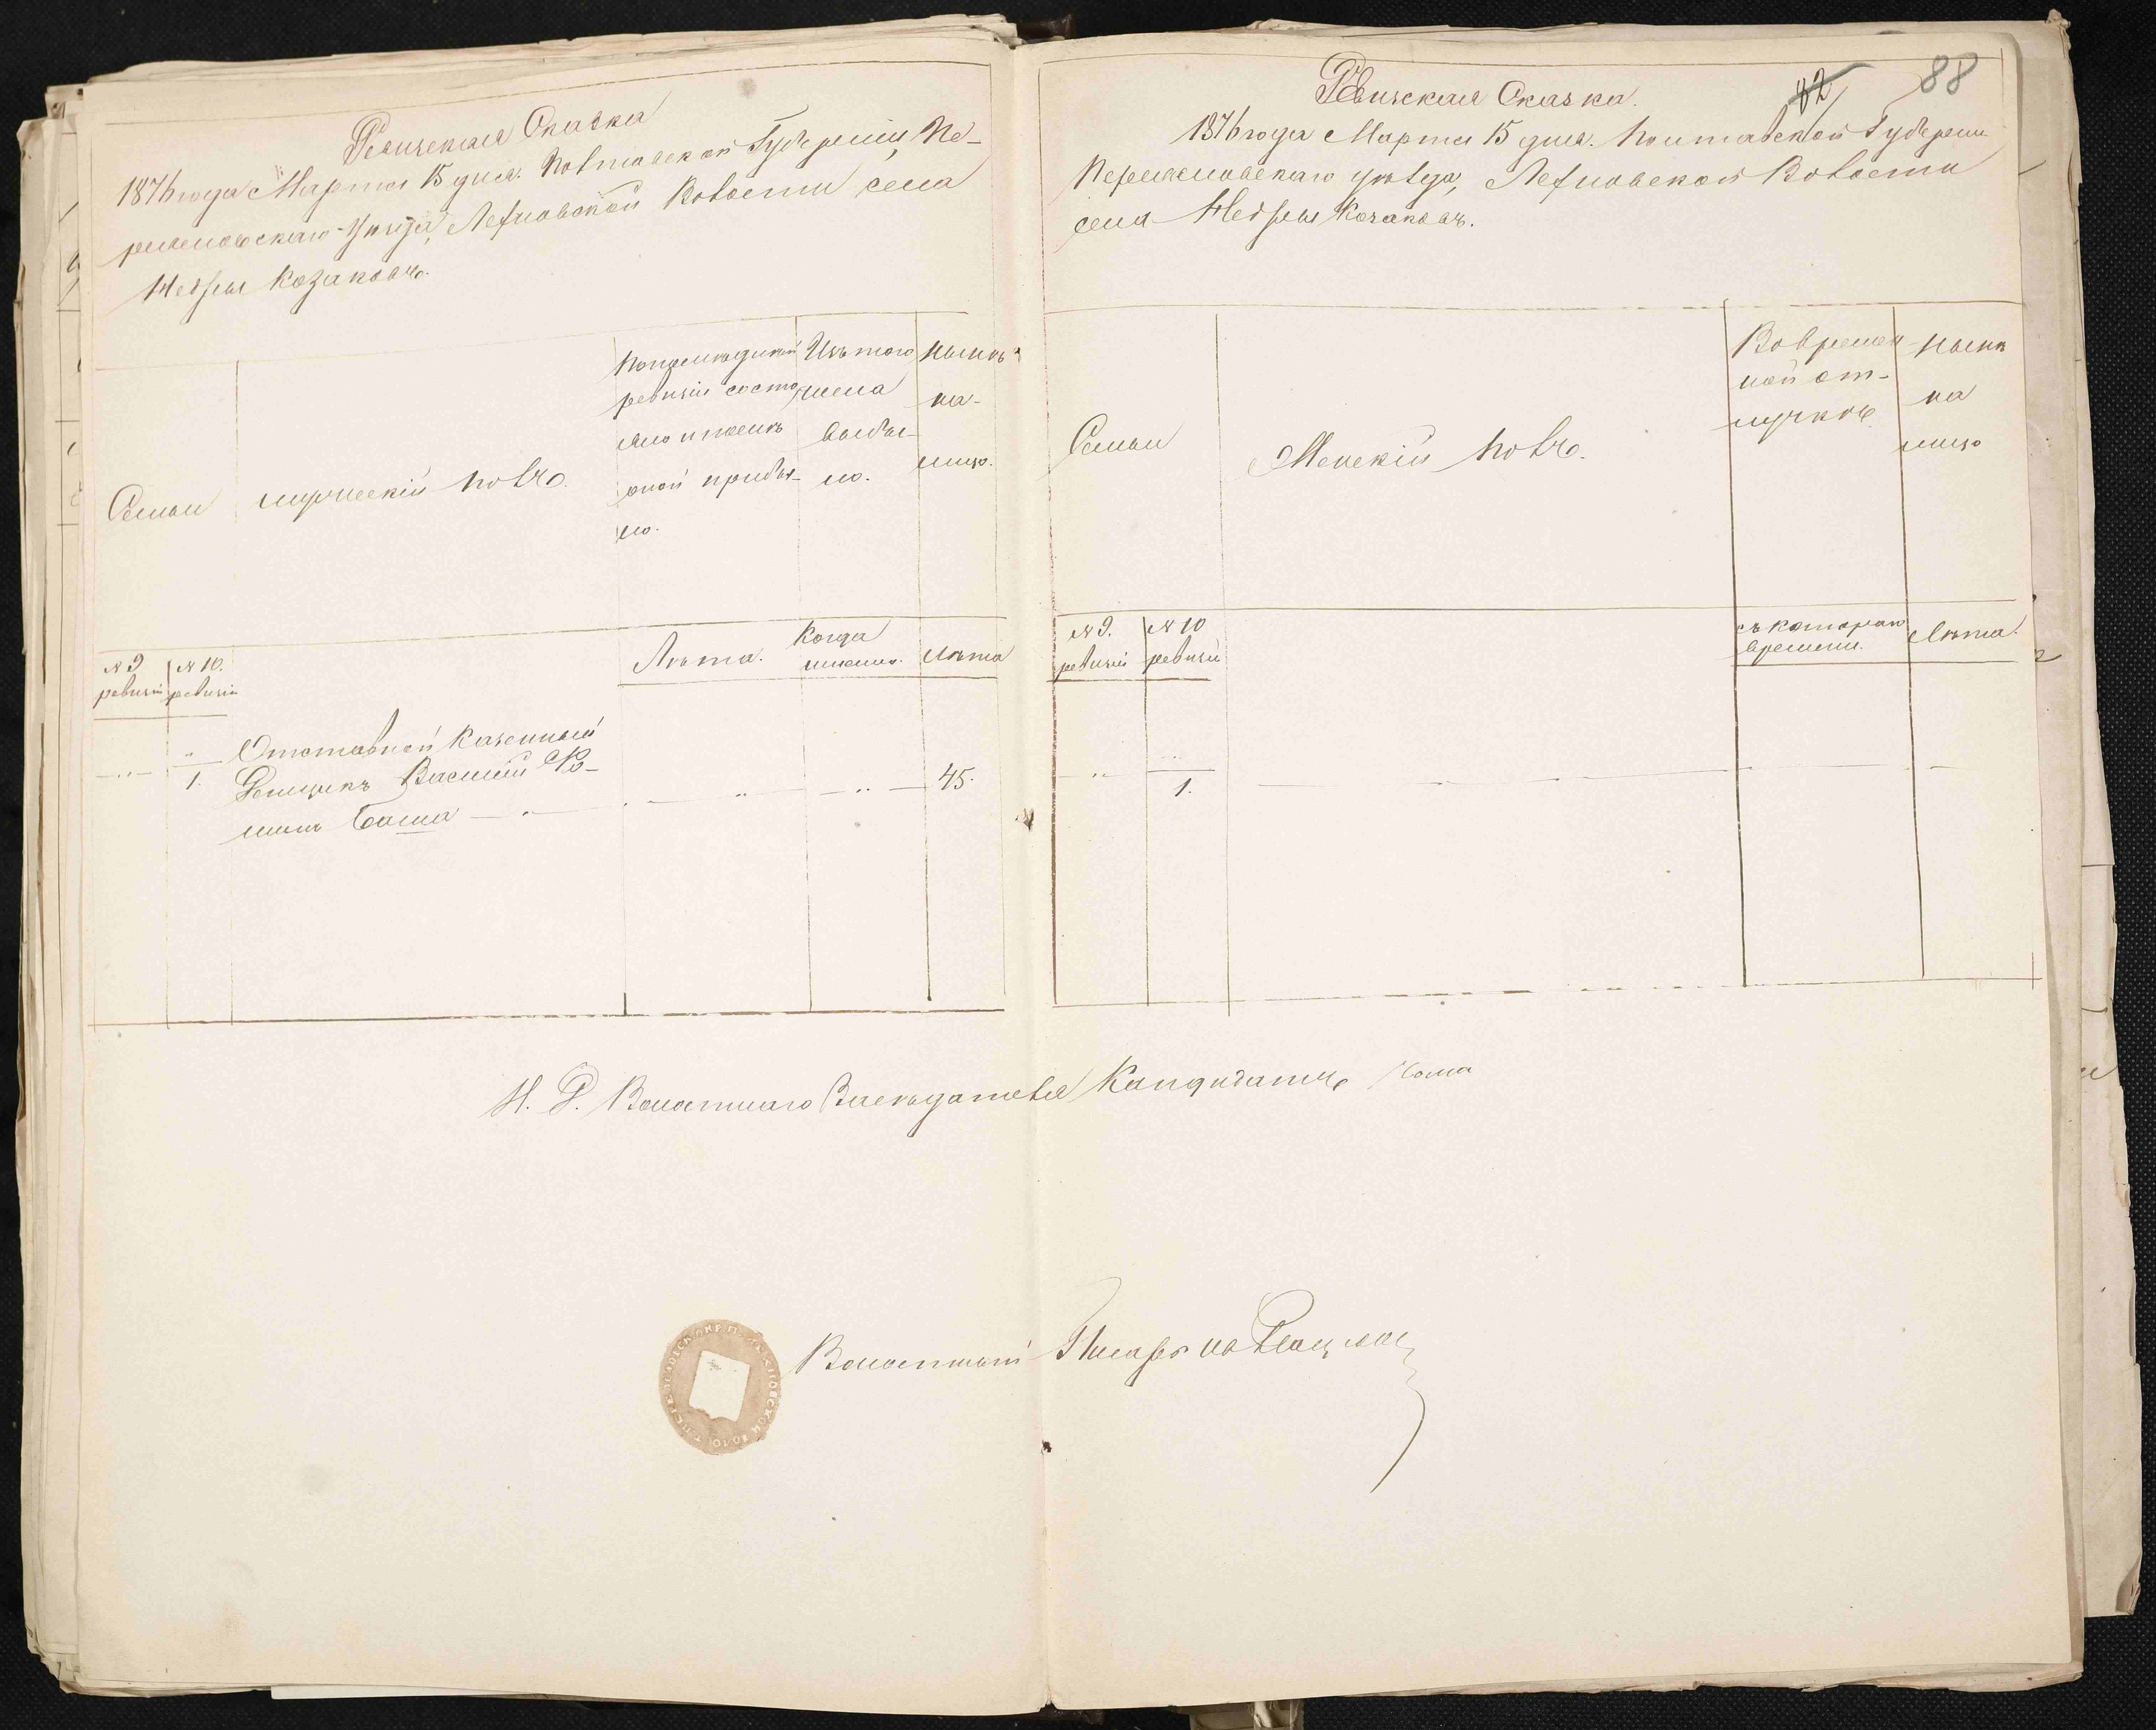 Ревизская Сказка
1876 года Марта 15 дня. Полтавской Губернии, Пе-
реяславскаго Уезда, Лехновской Волости села
Недры Козаковъ.
Семьи
мужескій полъ.
По последней
ревизіи состо
яло и после
оной прибы-
ло.
Изъ того
числа
выбы-
ло.
Ныне
на-
лицо.
№ 9
ревизіи
№ 10.
ревизіи
Лѣта.
Когда
именно.
Лѣта
1.
Отставной Казенный
Денщикъ Василій Ѳо-
минъ Баша
45.
82
88
Ревизская Сказка.
1876 года Марта 15 дня. Полтавской Губерніи
Переяславскаго уѣзда, Лехновской Волости
села Недры Козаковъ.
Семьи
Женскій полъ.
Во времен
ной от-
лучкѣ
Ныне
на
лицо
№ 9.
ревизіи
№ 10
ревизіи
съ котораго
времени.
Лѣта.
1.
И. Д. Волостнаго Заседателя Кандидатъ
Волостный Писарь